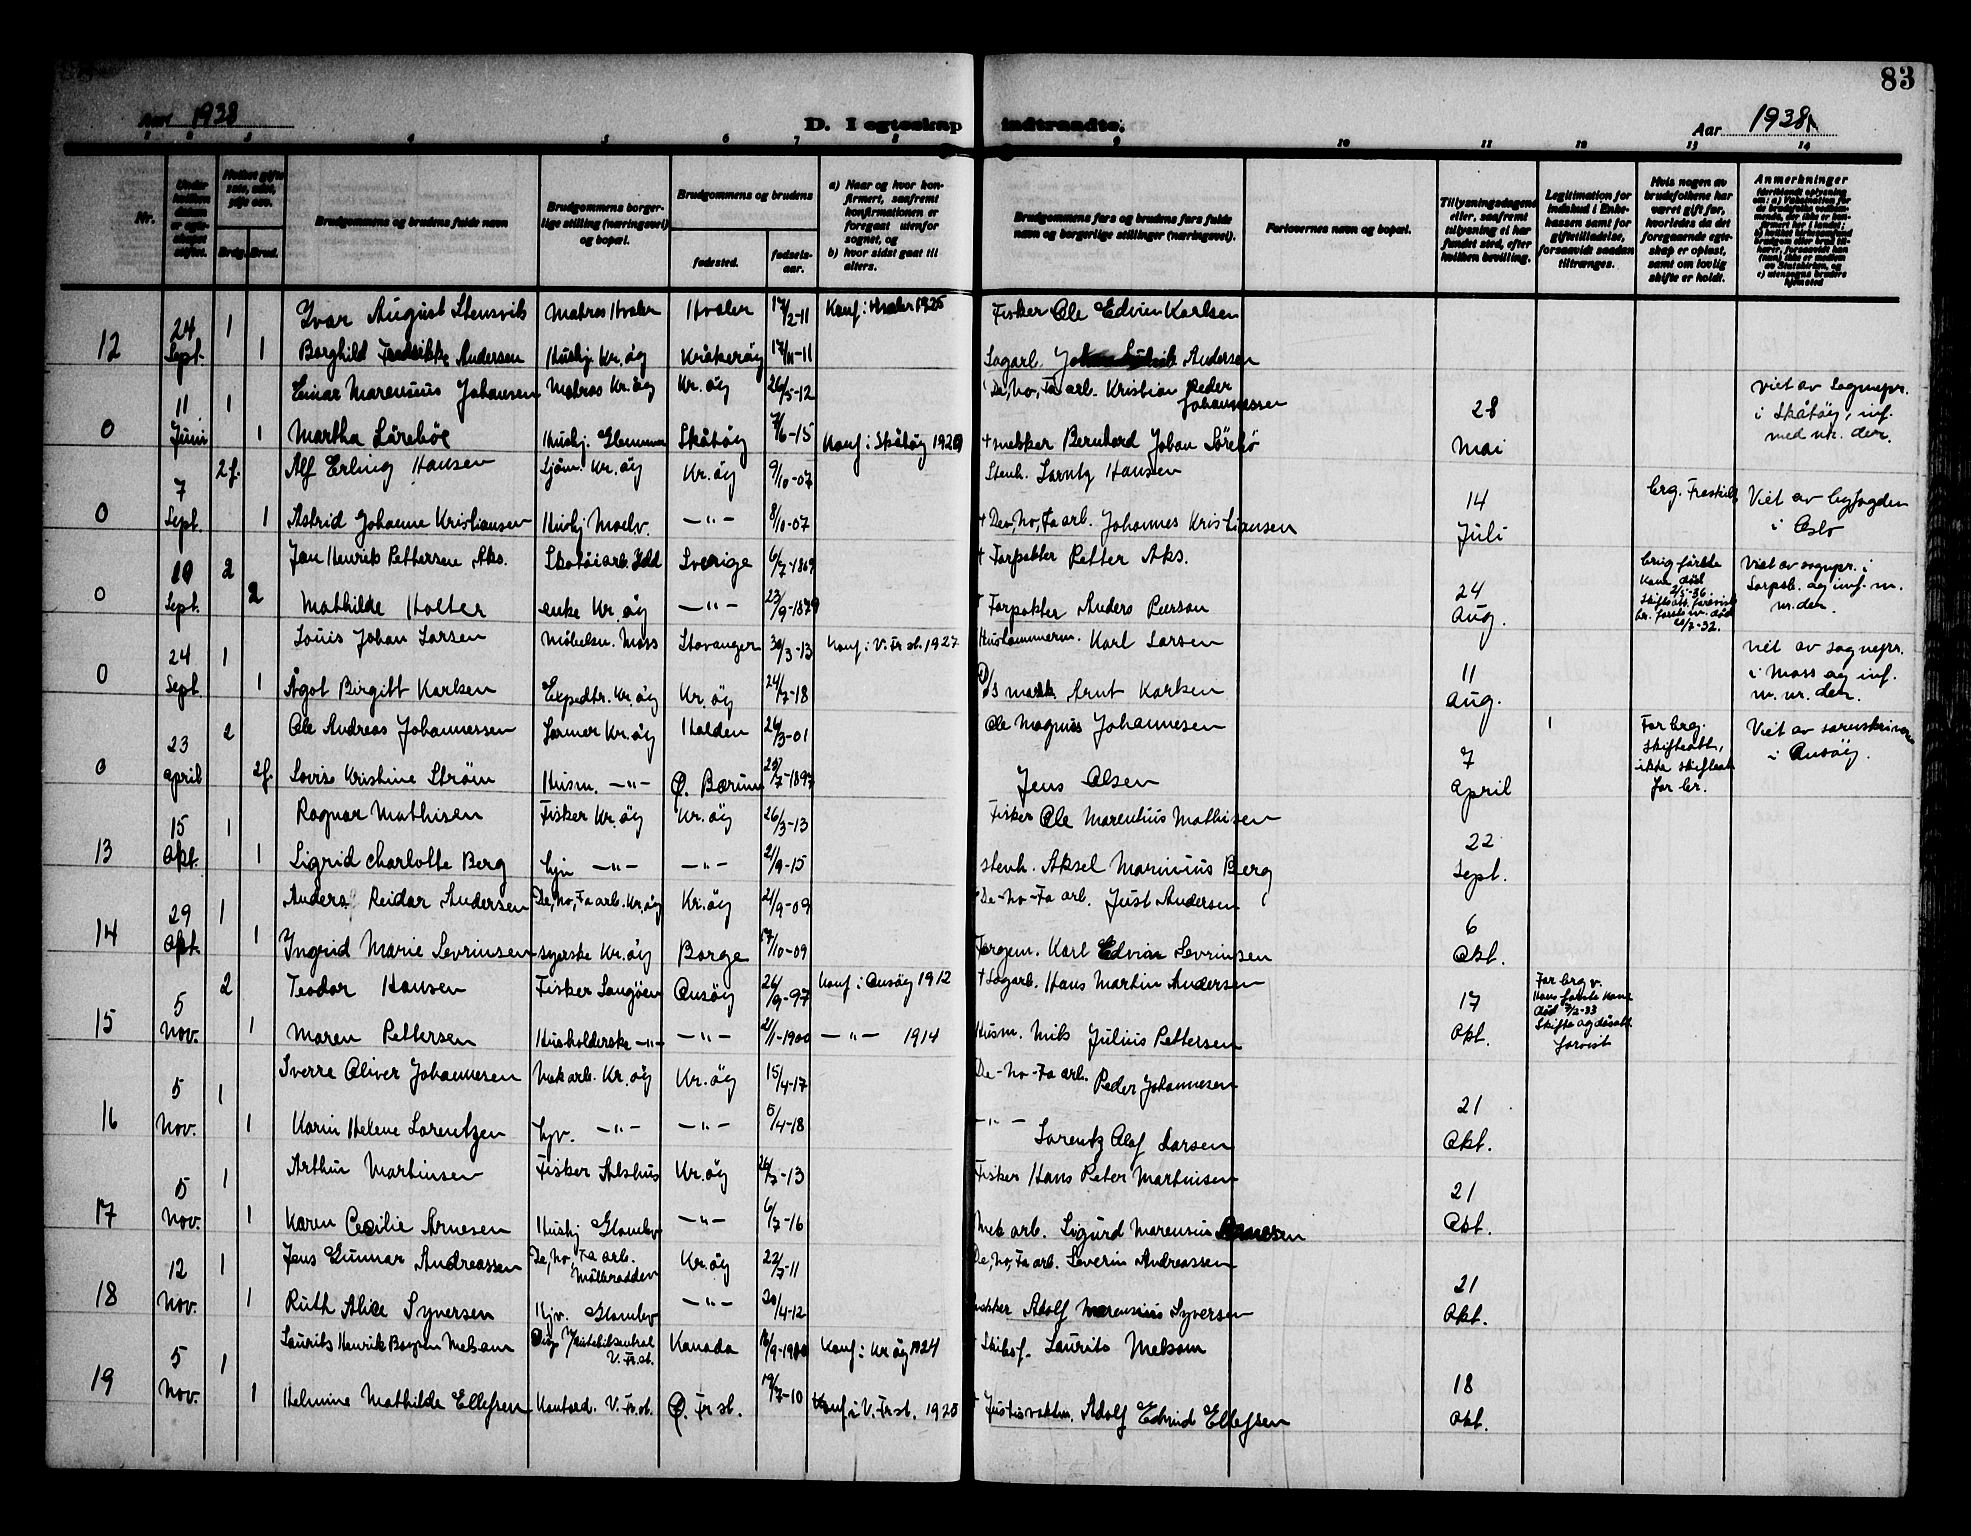 83
Aar 1938
D. I egteskap indtraadte.
Aar 1938
1 2 3 4 5 6 7 8 9 10 11 12 13 14
Nr.
Brudg. Brud.
Brudgommens og brudens fulde navn
Brudgommens borger-
lige stilling (næringsvei)
og bopæl.
Brudgommens og brudens
fødested.
fødsels-
aar.
a) Naar og hvor kon-
firmert, saafremt
konfirmationen er
foregaat utenfor
sognet, og
b) hvor sidst gaat til
alters.
Brudgommens fars og brudens fars fulde
navn og borgerlige stillinger (næringsvei).
Forlovernes navn og bopæl.
Tillysningsdagene
eller, saafremt
tillysning ei har
fundet sted, efter
hvilken bevilling.
Legitimation for
indskud i Enke-
kassen samt for
giftetilladelse,
forsaavidt saadan
tiltrænges.
Hvis nogen av
brudefolkene har
været gift før,
hvorledes da det
foregaaende egte-
skap er opløst,
samt om lovlig
skifte er holdt.
Anmerkninger
12 24 Sept. 1 Ivar August Stensvik Matros Hvaler Hvaler 17/2-11 Konf. i Hvaler 1925 Fisker Ole Edvin Karlsen
1 Borghild Fredrikke Andersen Hushj. Kr.øy Kråkerøy 17/11-11 Sagarb. Andersen
0 11 Juni 1 Einar Marenius Johansen Matros Kr.øy Kr.øy 26/5-12 De, No, Fa arb. Kristian Peder Johannessen 28 Mai Viet av Sognepr. i Skåtøy, inf. med nr. der.
1 Martha Sørebøe Hushj. Glemmen Skåtøy 7/6-15 Konf. i Skåtøy 1929 + snekker Bernhard Johan Sørebø
0 7 Sept. 2f. Alf Erling Hansen Sjøm. Kr.øy Kr.øy 9/10-07 Stenh. Larntz Hansen 14 Juli brg. Fraskilt Viet av byfogden i Oslo
1 Astrid Johanne Kristiansen Hushj. Moelv. —"— 8/10-07 + De, No, Fa arb. Johannes Kristiansen
0 10 Sept. 2 Jan Henrik Pettersen Aks. Skotøiarb. Idd Sverige 6/7-1869 + Forpakter Petter Aks. 24 Aug. Viet av sognepr. i Sarpsb. og inf. m. nr. der.
2 Mathilde Holter enke Kr.øy —"— 23/9-1879 + Forpakter Anders Persson
0 24 Sept. 1 Louis Johan Larsen Møbelsn. Moss Stavanger 30/3-13 Konf. i V. Fr.st. 1927 Karl Larsen 11 Aug. viet av sognepr. i Moss og inf. m. nr. der.
1 Ågot Birgitt Karlsen Expedtr. Kr.øy Kr.øy 24/7-18 Arnt Karlsen
0 23 April 2 Ole Andreas Johannessen Former Kr.øy Halden 26/3-01 Ole Magnus Johannesen 7 April For brg. skifteatt., ikke skifteatt. for br. Viet av sorenskriver i Onsøy.
2f. Lovise Kristine Strøm Husm. —"— Ø. Bærum Jens Olsen
13 15 Okt. 1 Ragnar Mathisen Fisker Kr.øy Kr.øy 26/3-13 Fisker Ole Marentius Mathisen 22 Sept.
1 Sigrid Charlotte Berg —"— —"— 21/9-15 stenh. Aksel Marinius Berg
14 29 Okt. 1 Anders Reidar Andersen De, No, Fa arb. Kr.øy Kr.øy 21/9-09 De-No-Fa arb. Just Andersen 6 Okt.
1 Ingrid Marie Sevrinsen syerske Kr.øy Borge 17/10-09 Karl Edvin Sevrinsen
15 5 Nov. 2 Teodor Hansen Fisker Langøen Onsøy 26/9-97 Konf. i Onsøy 1912 + Sagarb. Hans Martin Andersen 17 Okt. For brg v. Hans første kone død 2/2-33 Skifte og dåpsatt. forevist
1 Maren Pettersen Husholderske —"— —"— 21/1-1900 —"— 1914 Husm. Nils Julius Pettersen
16 5 Nov. 1 Sverre Oliver Johannesen Mek arb. Kr.øy Kr.øy 15/4-17 De-No-Fa arb. Peder Johannesen 21 Okt.
1 Karin Helene Lorentzen hjv. —"— —"— 5/4-18 —"— Lorentz Olaf Larsen
17 5 Nov. 1 Arthur Martinsen Fisker Alshus Kr.øy 26/7-13 Fisker Hans Peter Martinsen 21 Okt.
1 Karen Cecilie Arnesen Hushj Glomlev —"— 6/7-16 Mek arb. Sigurd Marensius Arnesen
18 12 Nov. 1 Jens Gunnar Andreassen De, No, Fa arb. Mølbrodden Kr.øy 22/7-11 De, No, Fa arb. Severin Andreassen 21 Okt.
1 Ruth Alice Syversen Hjv. Glomlev —"— 20/4-12 Adolf Marensius Syversen
19 5 Nov. 1 Laurits Henrik Melsom V. Fr.st. Kanada Konf. i Kr.øy 1924 Skibsf. Laurits Melsom 18 Okt.
1 Helmine Mathilde Ellefsen Kontord. V. Fr.st. Ø. Fr.st. 19/7-10 Konf. i V. Fr.st. 1925 Adolf Edvind Ellefsen